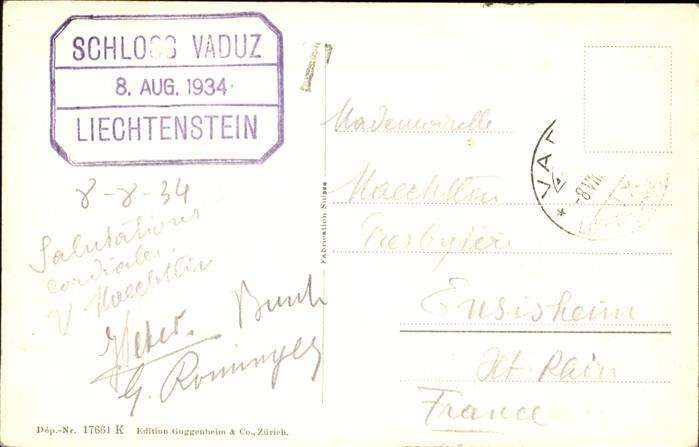 SCHLOSS VADUZ
8. AUG. 1934
LIECHTENSTEIN
T
8-8-34
Salutations
cordiales.
V Maechtlin
Weber. Bunk
G. Rominger
Fabrication Suisse
Mademoiselle
Maechtlin
Presbytère
Ensisheim
Ht Rhin
France
VAD
-8 VIII
Dép.-Nr. 17661 K Edition Guggenheim & Co., Zürich.